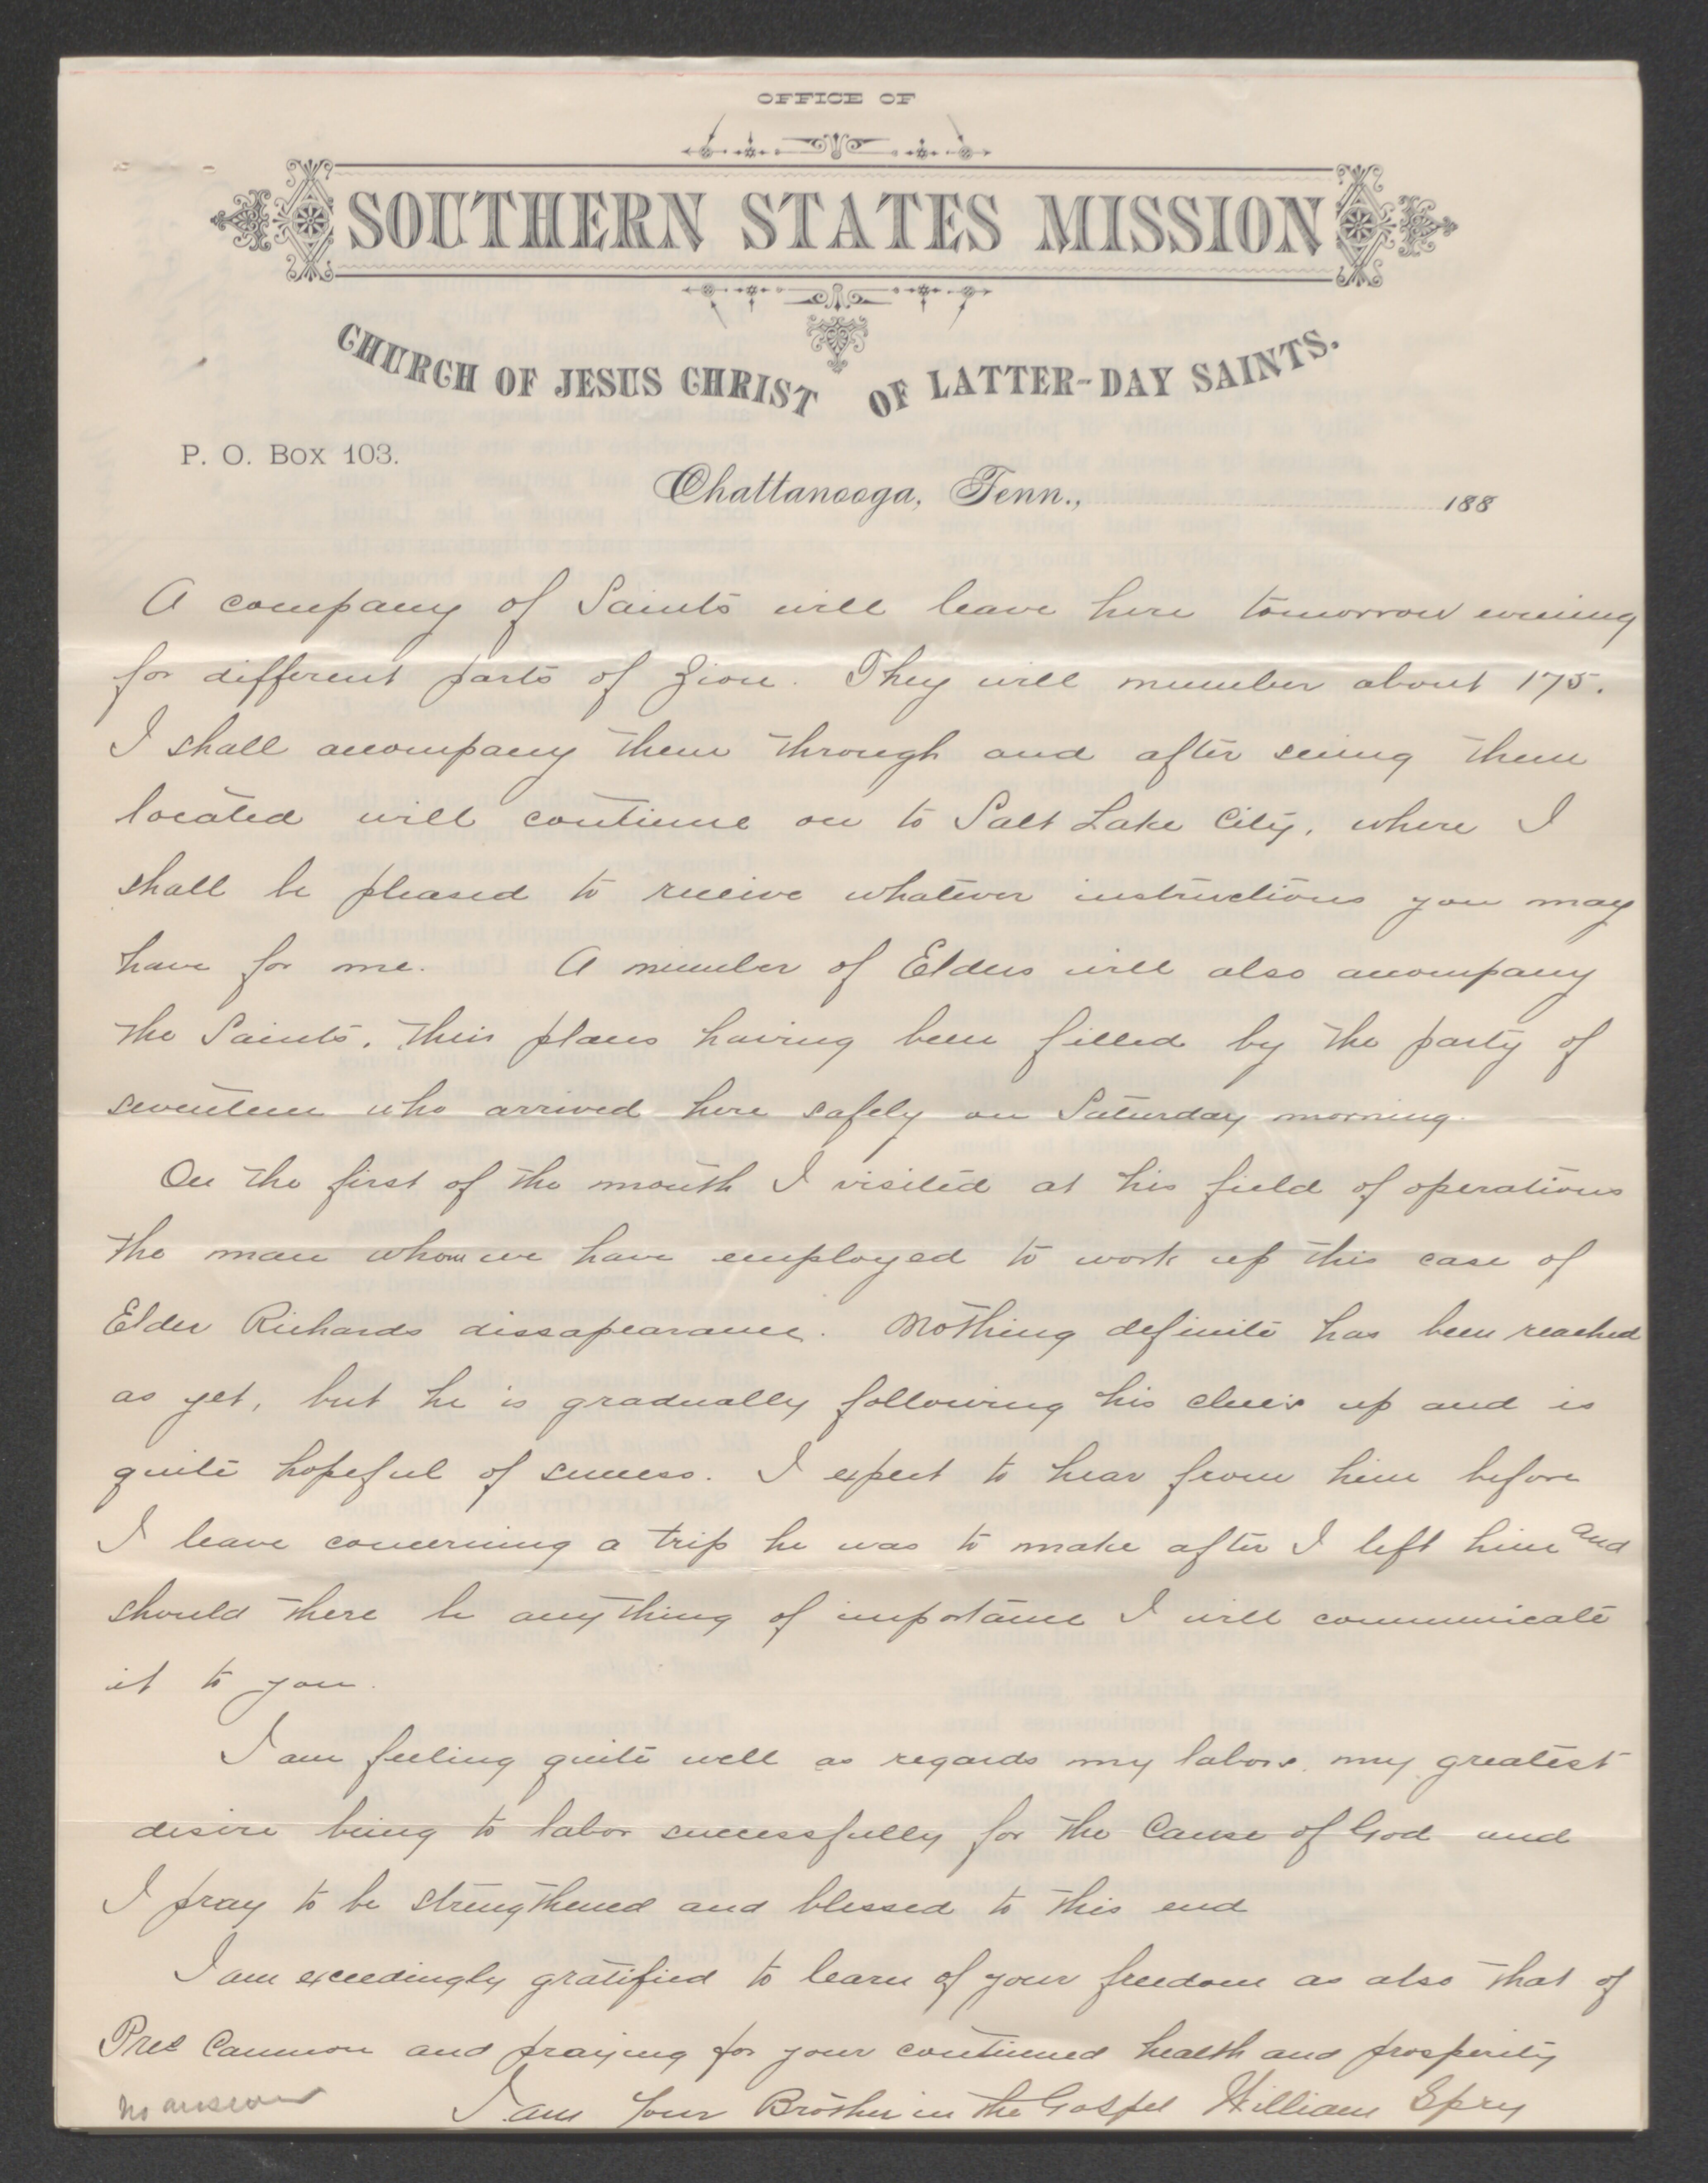 OFFICE OF
SOUTHERN STATES MISSION
CHURCH OF JESUS CHRIST OF LATTER-DAY SAINTS.
P. O. Box 103.
Chattanooga, Tenn., 188
A company of Saints will leave here tomorrow evening
for different parts of Zion. They will number about 175.
I shall accompany them through and after seeing them
located will continue on to Salt Lake City, where I
shall be pleased to receive whatever instructions you may
have for me. A number of Elders will also accompany
the Saints, their places having been filled by the party of
seventeen who arrived here safely on Saturday morning.
On the first of the month I visited at his field of operations
the man whom we have employed to work up this case of
Elder Richards dissapearance. Nothing definite has been reached
as yet, but he is gradually following his clues up and is
quite hopeful of success. I expect to hear from him before
I leave concerning a trip he was to make after I left him and
should there be anything of importance I will communicate
it to you.
I am feeling quite well as regards my labors, my greatest
desire being to labor successfully for the Cause of God and
I pray to be strengthened and blessed to this end
I am exceedingly gratified to learn of your freedom as also that of
Pres Cannon and praying for your continued health and prosperity
I am Your Brother in the Gospel William Spry
No answer